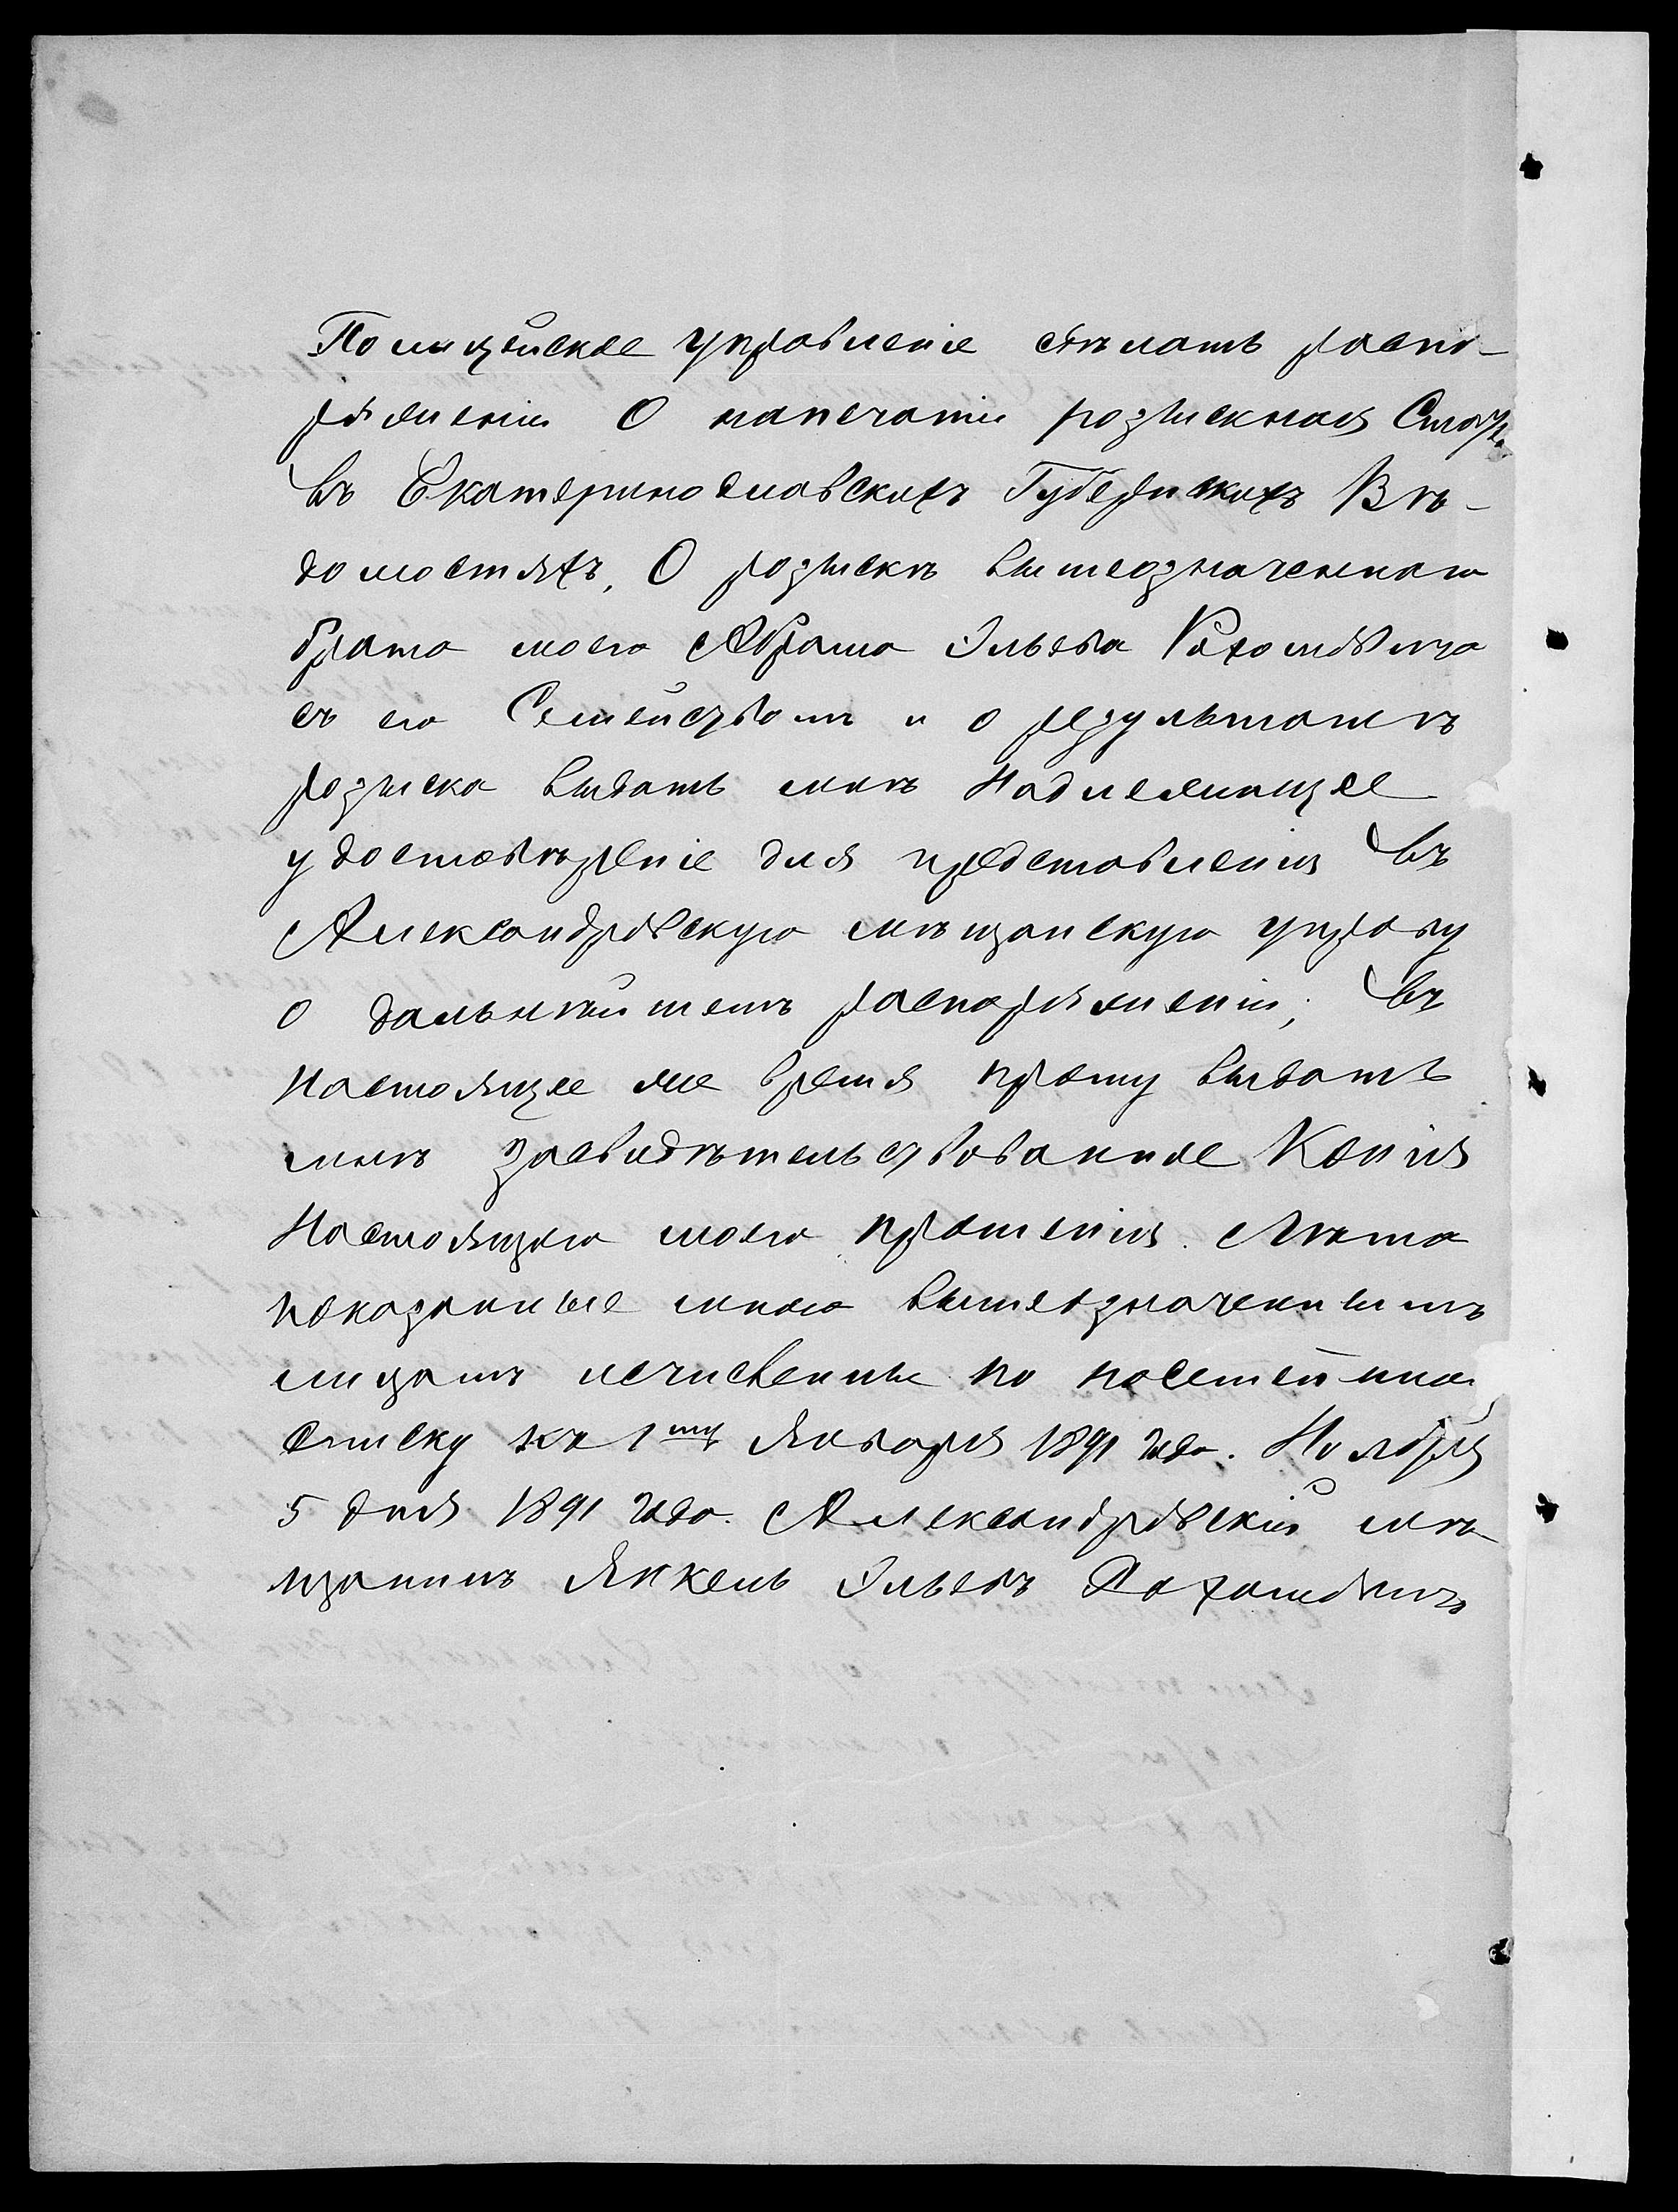 Полицейское управленіе сдѣлать распо-
ряженіи О напечатіи розыскная Стат.
въ Екатеринославскихъ Губернскихъ Вѣ-
домостяхъ, О розыскѣ вышеозначеннаго
брата моего Абрама Эльева Рахомовича
съ его Семействомъ и о результатѣ
розыска выдать мнѣ Надлежащее
удостовѣреніе для представленія въ
Александровскую мѣщанскую управу
о дальнѣйшемъ распоряженіи; въ
настоящее же время прошу выдать
мнѣ засвидѣтельствованное Копія
Настоящаго моего прошенія. Лѣта
показанные мною вышеозначеннымъ
лицамъ исчисленны по посемейна
списку къ 1му Января 1891 года. Ноября
5 дня 1891 года. Александровскій мѣ-
щанинъ Янкель Эльевъ